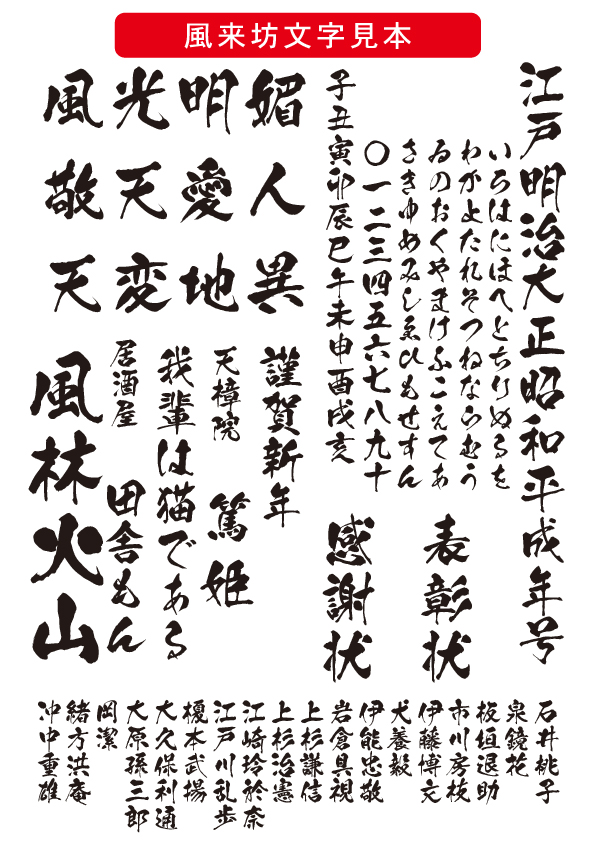 風来坊文字見本
江戸明治大正昭和平成年号
いろはにほへとちりぬるを
わかよたれそつねならむう
ゐのおくやまけふこえてあ
さきゆめみしゑひもせすん
〇一二三四五六七八九十
子丑寅卯辰巳午未申酉戌亥
媚人異
明愛地
光天変
風敬天
表彰状
感謝状
謹賀新年
天樟院
篤姫
我輩は猫である
居酒屋
田舎もん
風林火山
石井桃子
泉鏡花
板垣退助
市川房枝
伊藤博文
犬養毅
伊能忠敬
岩倉具視
上杉謙信
上杉治憲
江崎玲於奈
江戸川乱歩
榎本武揚
大久保利通
大原孫三郎
岡潔
緒方洪庵
沖中重雄